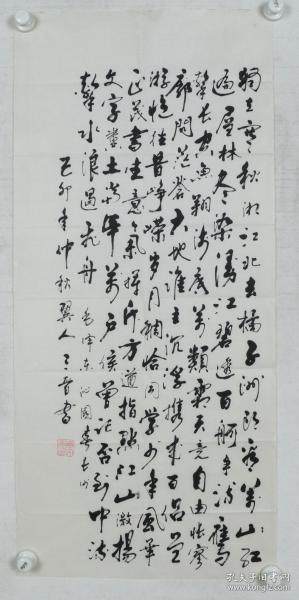 獨立寒秋湘江北去橘子洲头看萬山红
遍层林尽染漫江碧透百舸争流鹰
擊长空鱼翔浅底萬類霜天竞自由怅寥
廓問苍茫大地谁主沉浮携来百侣曾
游忆往昔峥嵘岁月稠恰同学少年風華
正茂书生意氣揮斥方遒指點江山激揚
文字糞土当年萬户侯曾记否到中流
擊水浪遏飞舟 毛泽东 沁园春长沙
己卯年仲秋 翼人王書
孔夫子旧书网